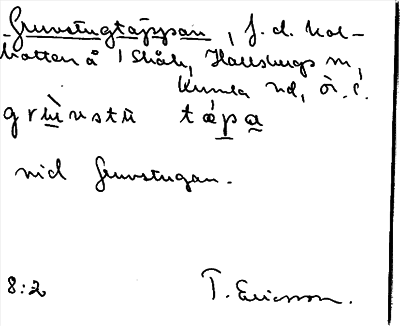 Gruvstugtäppan, f.d. kol-
botten å 1 Skåle, Hallsbergs m,
Kumla hd, Ör. l.
grùvstu tápa
vid Gruvstugan.
8:2 T. Ericsson.